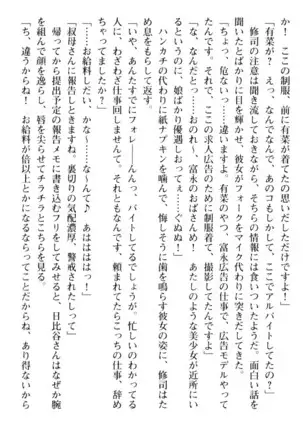 か！　この制服、前に有菜が着てたの思いだしただけですよ！」
「有菜が？　えっ、なんでなんで、あのコもしかして、ここでアルバイトしてたの？」
修司の注意は聞き流しておきながら、そちらの情報には食いついたようだ。面白い話を
聞いたとばかりに目を輝かせ、彼女がフォークをマイク代わりに突きだしてきた。
「ちょ、危ないっ……違いますよ。有菜のやつ、富永広告の仕事で、広告モデルやって
たんですよ。それで、ここの求人広告のために制服着て、撮影してたんです」
「な、なんだとっ……おのれ〜、富永のおばさんめ！　あたしのような美少女が近所にい
るというのに、娘ばかり優遇しおってぇ……ぐぬぬ！」
ハンカチの代わりに紙ナプキンを噛んで、悔しそうに歯を鳴らす彼女の姿に、修司はた
め息をもらして返す。
「いや、あんたすでにフォレ―――んんっ、バイトしてるでしょうが。忙しいのわかってる
人に、わざわざ仕事回しませんって。それともなんです、頼まれてたらこっちの仕事、辞め
ちゃってました？」
「お給料しだい、かな〜……なんて♪　あはははっ！」
「叔母さんに報告しときますね。裏切りの気配濃厚、警戒されたしって」
帰ってから提出予定の報告メモに書き込むフリをしてみせると、日比谷さんはなぜか腕
を組んで顔を逸らし、唇を尖らせてチラチラとこちらを見る。
「ち、違うからね！　お給料が倍以上とかになるならってことだからね、あり得ないから